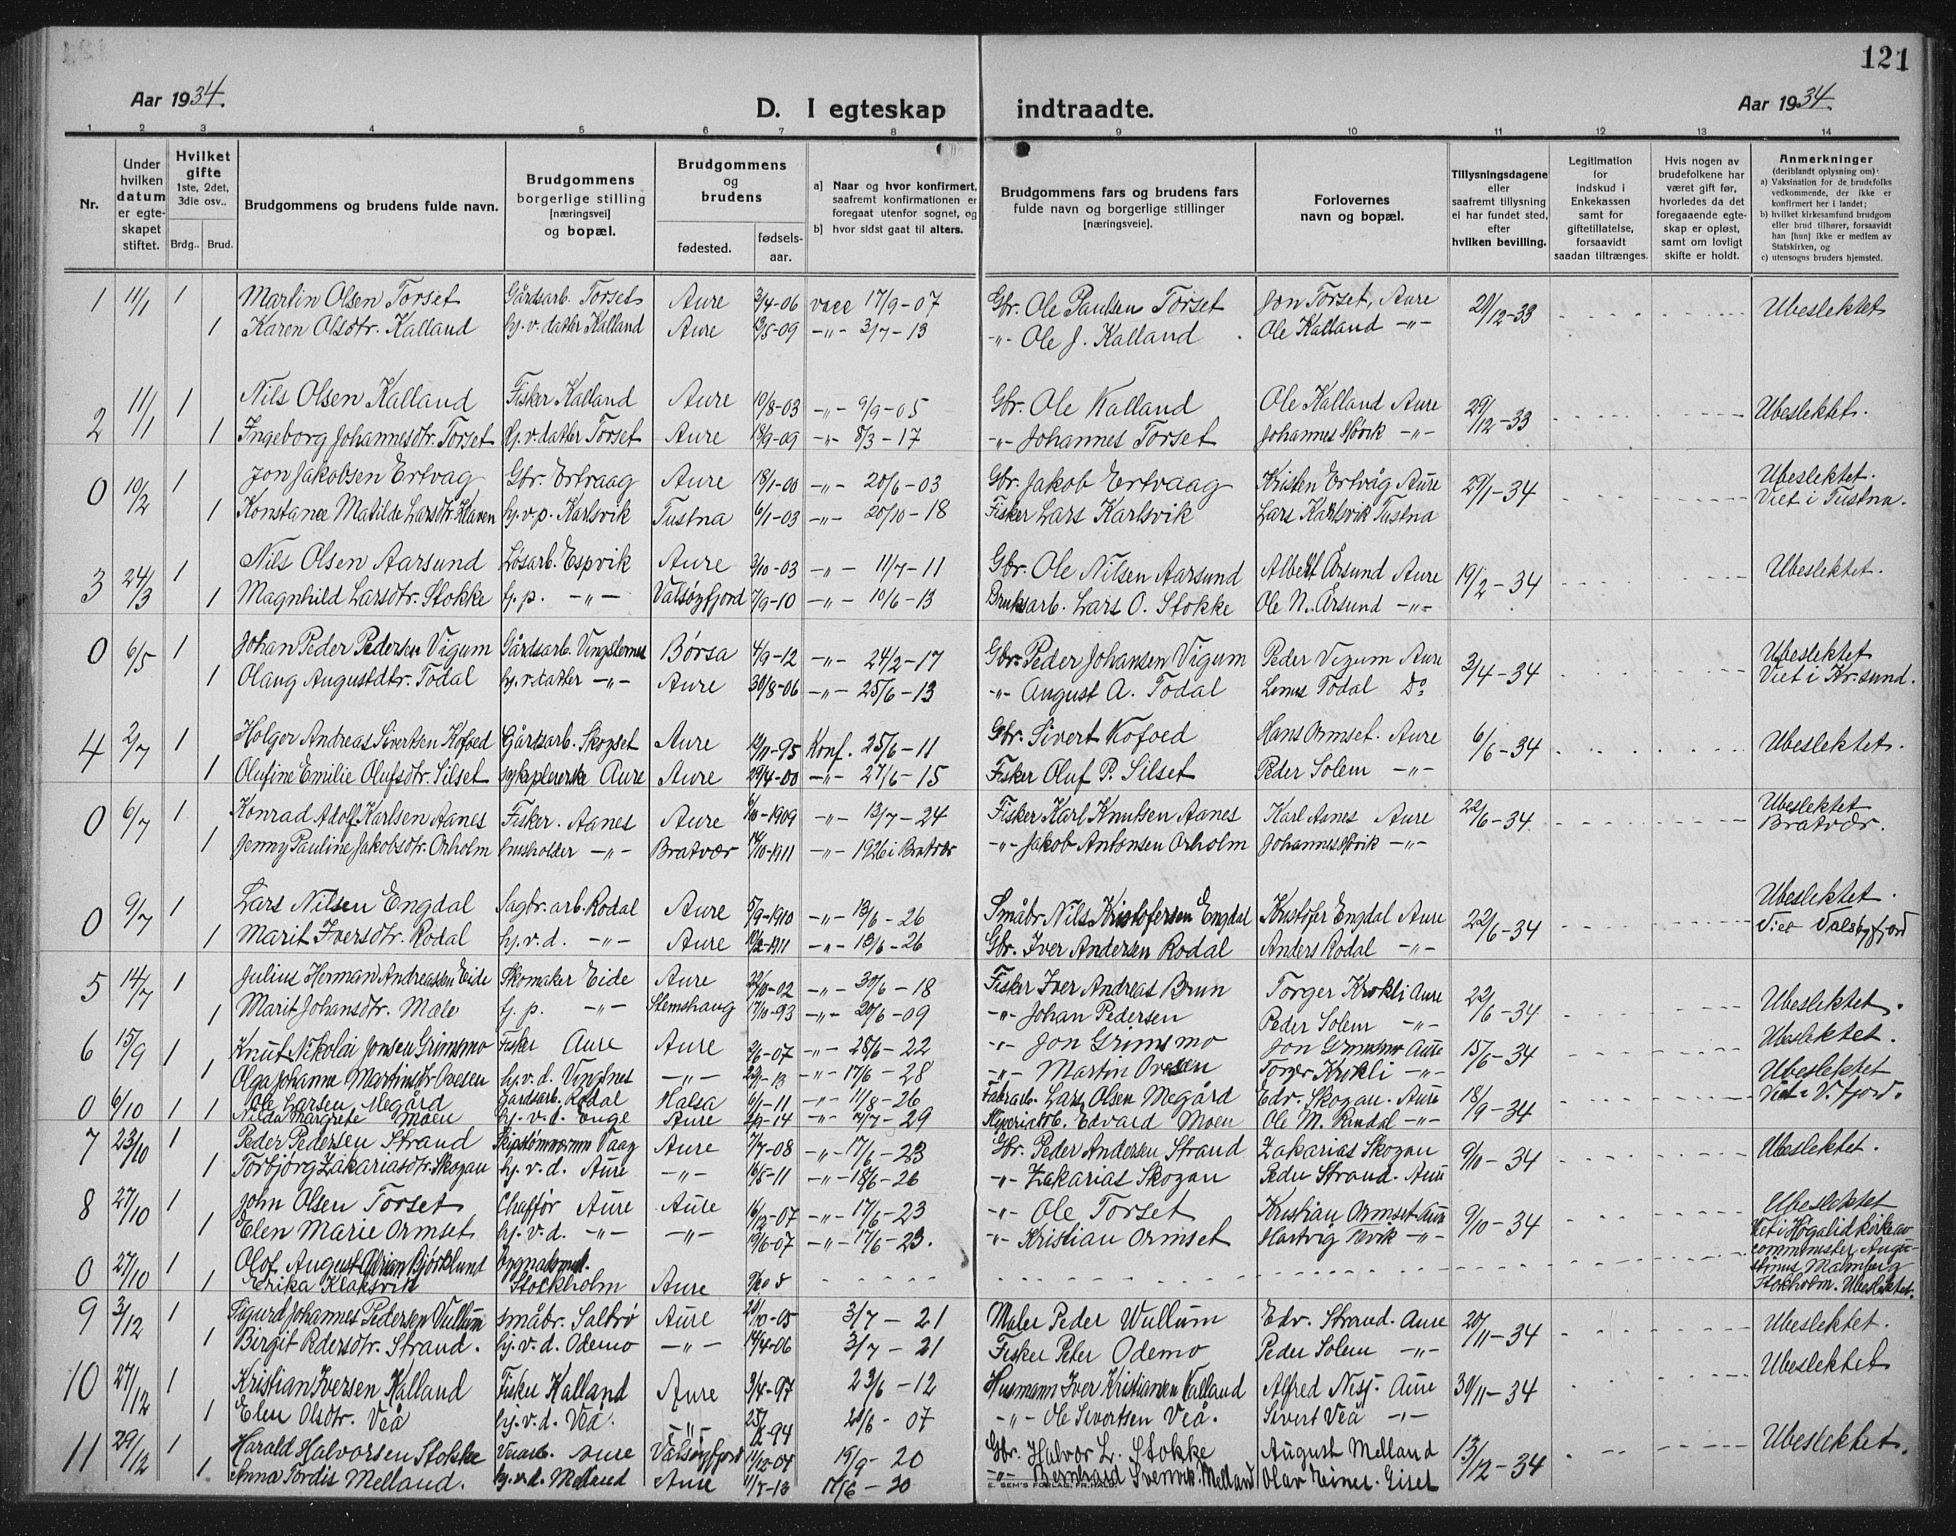 121
Aar 1934.
D. I egteskap indtraadte.
Aar 1934.
1 2 3 4 5 6 7 8 9 10 11 12 13 14
Nr.
Under hvilken datum er egteskapet stiftet.
Hvilket gifte 1ste, 2det, 3die osv..
Brdg.. Brud.
Brudgommens og brudens fulde navn.
Brudgommens borgerlige stilling [næringsvei] og bopæl.
Brudgommens og brudens
fødested. fødselsaar.
a] Naar og hvor konfirmert, saafremt konfirmationen er foregaat utenfor sognet, og
b] hvor sidst gaat til alters.
Brudgommens fars og brudens fars fulde navn og borgerlige stillinger [næringsveie].
Forlovernes navn og bopæl.
Tillysningsdagene eller saafremt tillysning ei har fundet sted, efter hvilken bevilling.
Legitimation for indskud i Enkekassen samt for giftetillatelse, forsaavidt saadan tiltrænges.
Hvis nogen av brudefolkene har været gift før, hvorledes da det foregaaende egteskap er opløst, samt om lovligt skifte er holdt.
Anmerkninger (deriblandt oplysning om):
a) Vaksination for de brudefolks vedkommende, der ikke er konfirmert her i landet;
b) hvilket kirkesamfund brudgom eller brud tilhører, forsaavidt han [hun] ikke er medlem av Statskirken, og
c) utensogns bruders hjemsted.
1 11/1 1 Martin Olsen Torset Gårdsarb. Torset Aure 3/4-06 vacc 17/9-07 Gbr. Ole Paulsen Torset Jon Torset, Aure 29/12-33 Ubeslektet
1 Karen Olsdtr. Kalland hj.v. datter Kalland Aure 13/5-09 -"- 3/7-13 -"- Ole J. Kalland Ole Kalland -"-
2 11/1 1 Nils Olsen Kalland Fisker Kalland Aure 10/8-03 -"- 9/9-05 Gbr. Ole Kalland Ole Kalland Aure 29/12-33 Ubeslektet.
1 Ingeborg Johannesdtr. Torset hj.v. datter Torset Aure 18/9-09 -"- 8/3-17 -"- Johannes Torset Johannes Hovik -"-
0 10/2 1 Jon Jakobsen Ertvag Gbr. Ertvaag Aure 18/1-00 -"- 20/6-03 Gbr. Jakob Ertvaag Kristen Ertvåg Aure 29/1-34 Ubeslektet. Viet i Tustna.
1 Konstance Matilde Larsdtr. Klaven hj.v.p. Karlsvik Tustna 6/1-03 -"- 20/10-18 Fisker Lars Karlsvik Lars Karlsvik Tustna
3 24/3 1 Nils Olsen Aarsund Løsarb. Espvik Aure 3/10-03 -"- 11/7-11 Gbr. Ole Nilsen Aarsund Albert Årsund Aure 19/2-34 Ubeslektet.
1 Magnhild Larsdtr. Stokke hj.p. -"- Valsøyfjord 7/9-10 -"- 10/6-13 Bruksarb. Lars O. Stokke Ole N. Årsund -"-
0 6/5 1 Johan Peder Pedersen Vigum Gårdsarb. Vingsternes Børsa 4/9-12 -"- 24/2-17 Gbr. Peder Johansen Vigum Peder Vigum Aure 3/4-34 Ubeslektet Viet i Kr.sund.
1 Olaug Augustdtr. Todal hj.v. datter -"- Aure 30/8-06 -"- 25/6-13 -"- August A. Todal Todal Do
4 2/7 1 Holger Andreas Sivertsen Kofoed Gårdsarb. Skogset Aure 12/11-95 Konf. 25/6-11 Gbr. Sivert Kofoed Hans Ormset. Aure 6/6-34 Ubeslektet.
1 Olufine Emilie Olufsdtr. Silset sykepleierske Aure Aure 29/4-00 -"- 27/6-15 Fisker Oluf P. Silset Peder Solem -"-
0 6/7 1 Konrad Adolf Karlsen Aanes Fisker. Aanes Aure 6/10-1909 -"- 13/7-24 Fisker Karl Knutsen Aanes Karl Aanes Aure 22/6-34. Ubeslektet Bratvær.
1 Jenny Pauline Jakobsdtr. Orholm husholder -"- Bratvær 14/10-1911 -"- 1926 i Bratvær -"- Jakob Antonsen Orholm Johannes Hovik -"-
0 9/7 1 Lars Nilsen Engdal Sagbr.arb. Rodal Aure 5/9-1910 -"- 13/6-26 Småbr. Nils Kristofersen Engdal Kristofer Engdal Aure 22/6-34 Ubeslektet. Viet Valsøyfjord
1 Marit Iversdtr. Rodal hj.v.d. -"- Aure 10/2-1911 -"- 13/6-26 Gbr. Iver Andersen Rodal Anders Rodal -"-
5 14/7 1 Julius Herman Andreassen Eide Skomaker Eide Aure 22/10-02 -"- 30/6-18 Fisker Iver Andreas Brun Torger Krokli Aure 22/6-34 Ubeslektet.
1 Marit Johansdtr. Mæle hj.p. -"- Stemshaug 17/10-93 -"- 20/6-09 -"- Johan Pedersen Peder Solem -"-
6 15/9 1 Knut Nikolai Jonsen Grimsmo Fisker Aure Aure 2/6-07 -"- 28/6-22 -"- Jon Grimsmo Jon Grimsmo Aure 15/6-34 Ubeslektet.
1 Olga Johanne Martinsdtr Ovesen hj.v.d. Vingsnes -"- 22/1-13 -"- 17/6-28 -"- Martin Ovesen Torger Krokli -"-
0 6/10 1 Ole Larsen Megård Gårdsarb. Rodal Halsa 6/1-11 -"- 11/8-26 Fabrarb. Lars Olsen Megård Edv. Skogan. Aure 18/9-34 Ubeslektet Viet i V.fjord.
1 Nilda Margrete Moen hj.v.d. Enge Aure -14 -"- 12/7-29 Edvard Moen Ole M. Rendal -"-
7 23/10 1 Peder Pedersen Strand Skipstømmermn Vaag Aure 7/7-08 -"- 17/6-23 Gbr. Peder Andersen Strand Zakarias Skogan 9/10-34 Ubeslektet.
1 Torbjørg Zakariasdtr. Skogan hj.v.d. Aure -"- 16/5-11 -"- 18/6-26 -"- Zakarias Skogan Peder Strand. Aure
8 27/10 1 John Olsen Torset Chaffør Aure Aure 16/12-07 -"- 17/6-23 -"- Ole Torset Kristian Ormset Aure 9/10-34 Ubeslektet
1 Elen Marie Ormset hj.v.d. -"- -"- 19/6-07 -"- 17/6-23. -"- Kristian Ormset Hartvig -"-
0 27/10 1 Olof August Adrian Bjørklund Viet i Högalid Kirke av comminister Augustinus Malmberg Stokholm. Ubeslektet.
1 Erika Klaksvik Stockholm Aure
9 3/12 1 Sigurd Johannes Pedersen Vullum småbr. Saltrø Aure 20/10-05 3/7-21 Maler Peder Wullum Edv. Strand. Aure 20/11-34 Ubeslektet.
1 Birgit Pedersdtr. Strand. hj.v.d. Odemo -"- 14/4-06 3/7-21 Fisker Peter Odemo Peder Solem -"-
10 27/12 1 Kristian Iversen Kalland Fisker Kalland Aure 9/4-97 23/6-12 Husmann Iver Kristiansen Kalland Alfred Nesj. Aure 30/11-34 Ubeslektet
1 Elen Olsdtr. Veå hj.v.d. Veå. -"- -94 20/6-07 -"- Ole Sivertsen Veå. Sivert Veå -"-
11 29/12 1 Harald Halvorsen Stokke Veiarb. Aure Valsøyfjord 11/10-04 19/9-20 Gbr. Halvor L. Stokke August Melland 13/12-34 Ubeslektet.
1 Anna Tordis Melland. hj.v.d. Melland Aure 11/5-13 17/6-30 -"- Bernhard Svenvik. Melland Olav Einar. Giset
E. SEM'S FORLAG, FR.HALD.